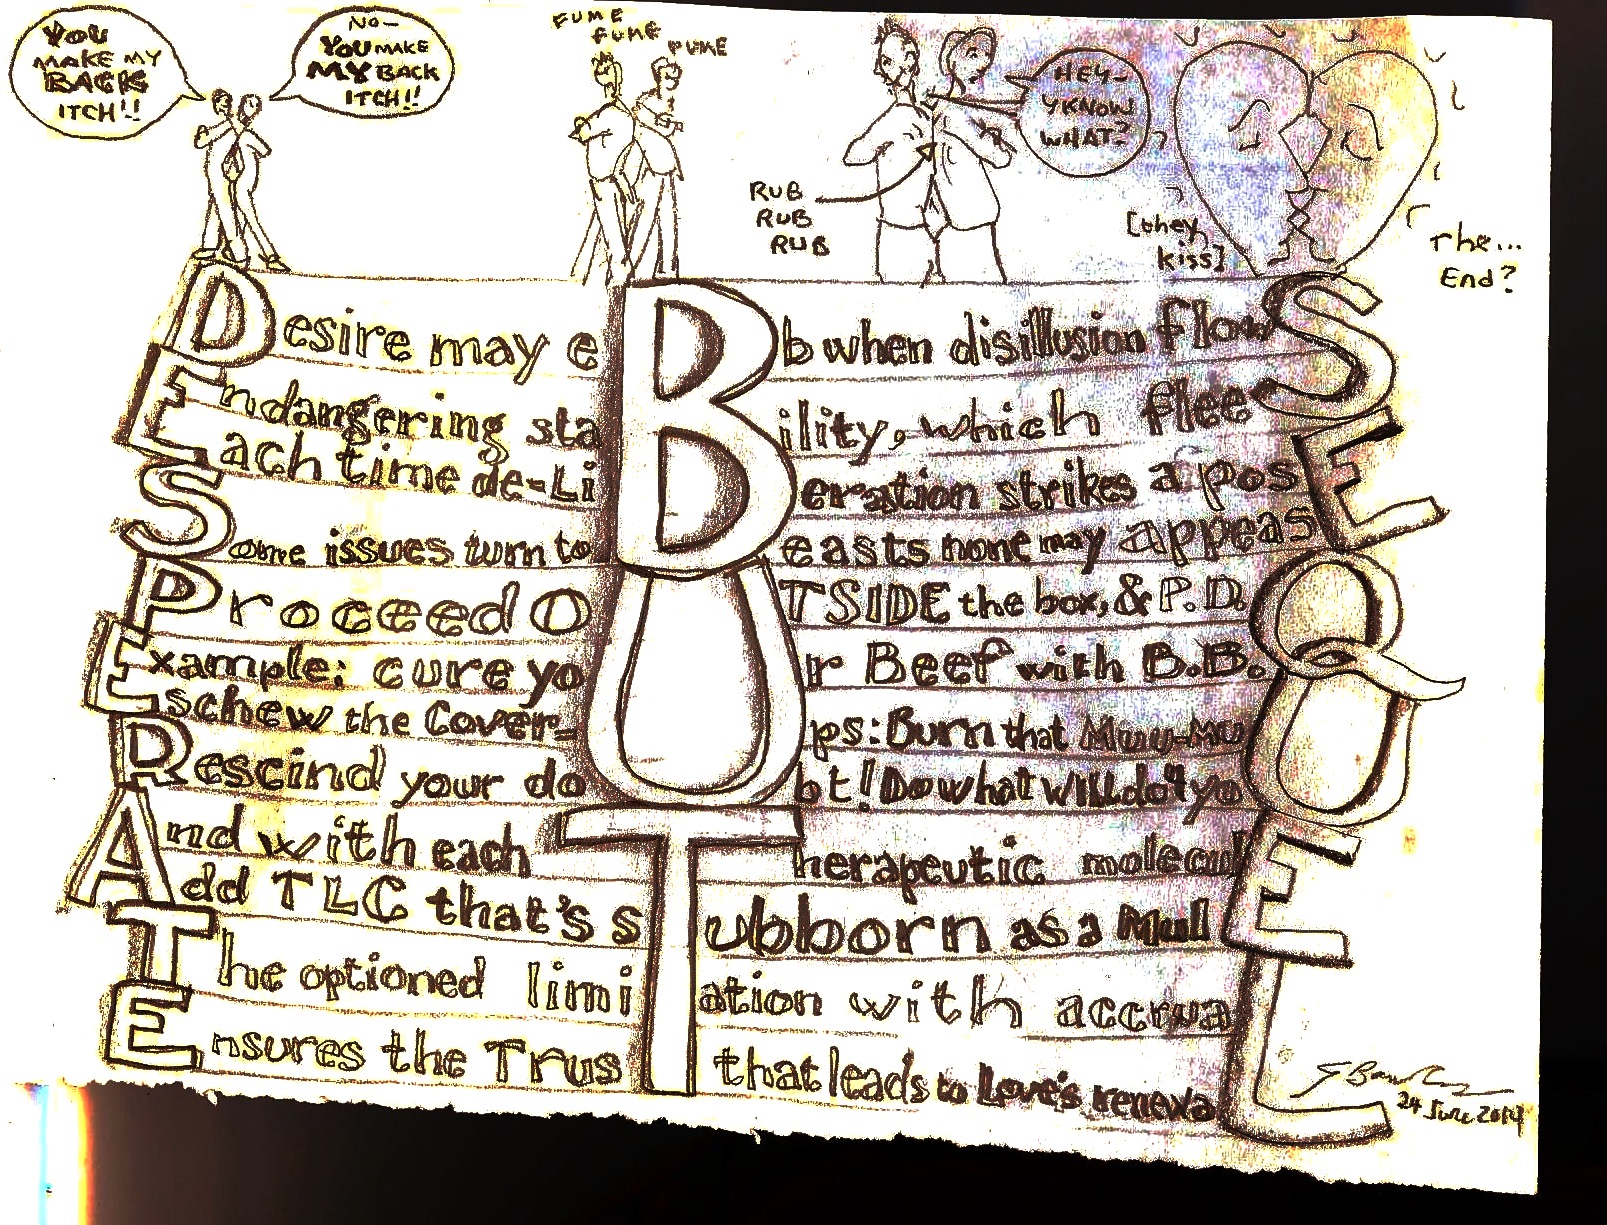 YOU
MAKE MY
BACK
ITCH!!
NO-
YOU MAKE
MY BACK
ITCH!!
FUME
FUME
FUME
RUB
RUB
RUB
HEY-
Y'KNOW
WHAT?
[they
kiss]
The...
End?
Desire may eBb when disillusion flowS
Endangering staBility, which fleeS
Each time de-LiBeration strikes a posE
Some issues turn to Beasts none may appeasE
Proceed OUTSIDE the box, & P.D.Q.
Example: cure yoUr Beef with B.B.Q.
Eschew the Cover-Ups: Burn that Muu-MuU
Rescind your doUbt! Do what will do 4 yoU
And with each Therapeutic moleculE
Add TLC that's sTubborn as a MulE
The optioned limiTation with accruaL
Ensures the TrusT that leads to Love's renewaL
24 June 2014